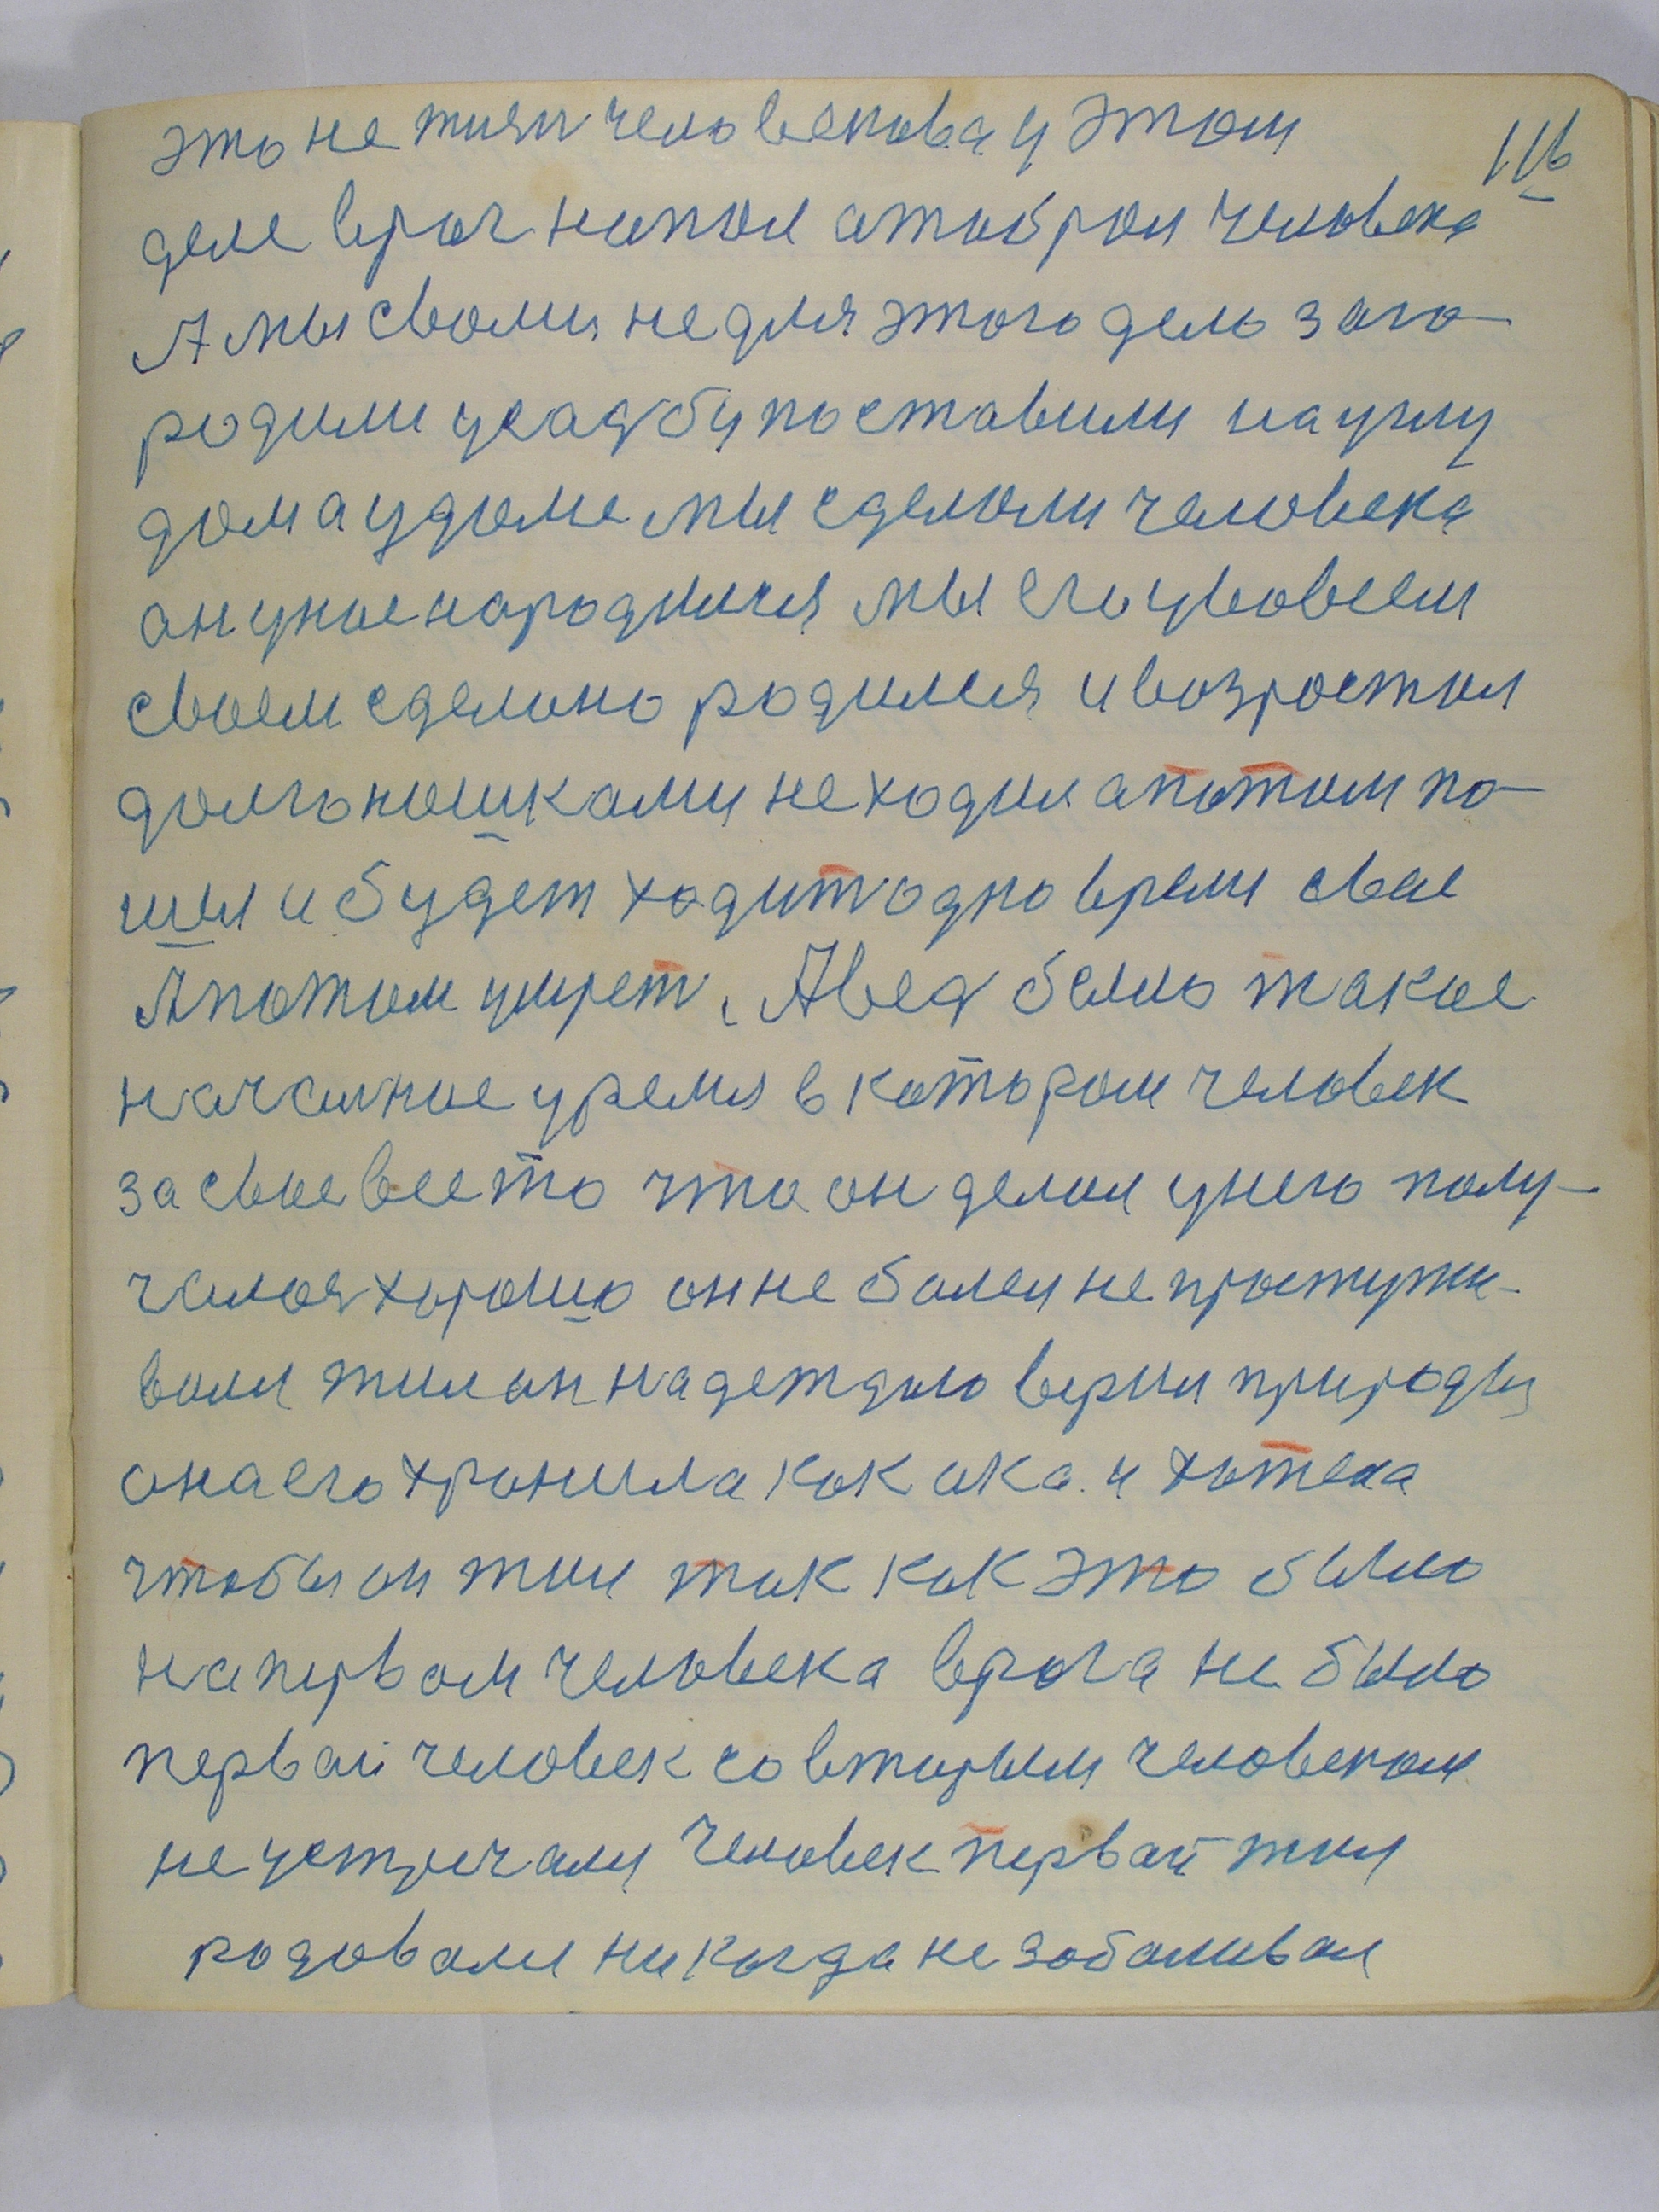 116
это не жизн человекова у этом
деле враг напал отобрал человека
А мы свами не для этого дело заго-
родили усадбу поставили на углу
дом а удоме мы сделали человека
он унас народился мы его увовсем
своем сделано родился и возростал
долго ношками не ходил а потом по-
шел и будет ходит одно время свае
А потом умрет. А вед было такое
началное уремя в котором человек
за свое все то что он делал унего полу-
чалося хорошо он не болел не простужи-
вался жил он надеждою верил природы
она его хранила как ока и хотела
чтобы он жил так как это было
на первом человека врага не было
первай человек со вторым человеком
не устричался Человек первай жил
родовался никогда не заболивал